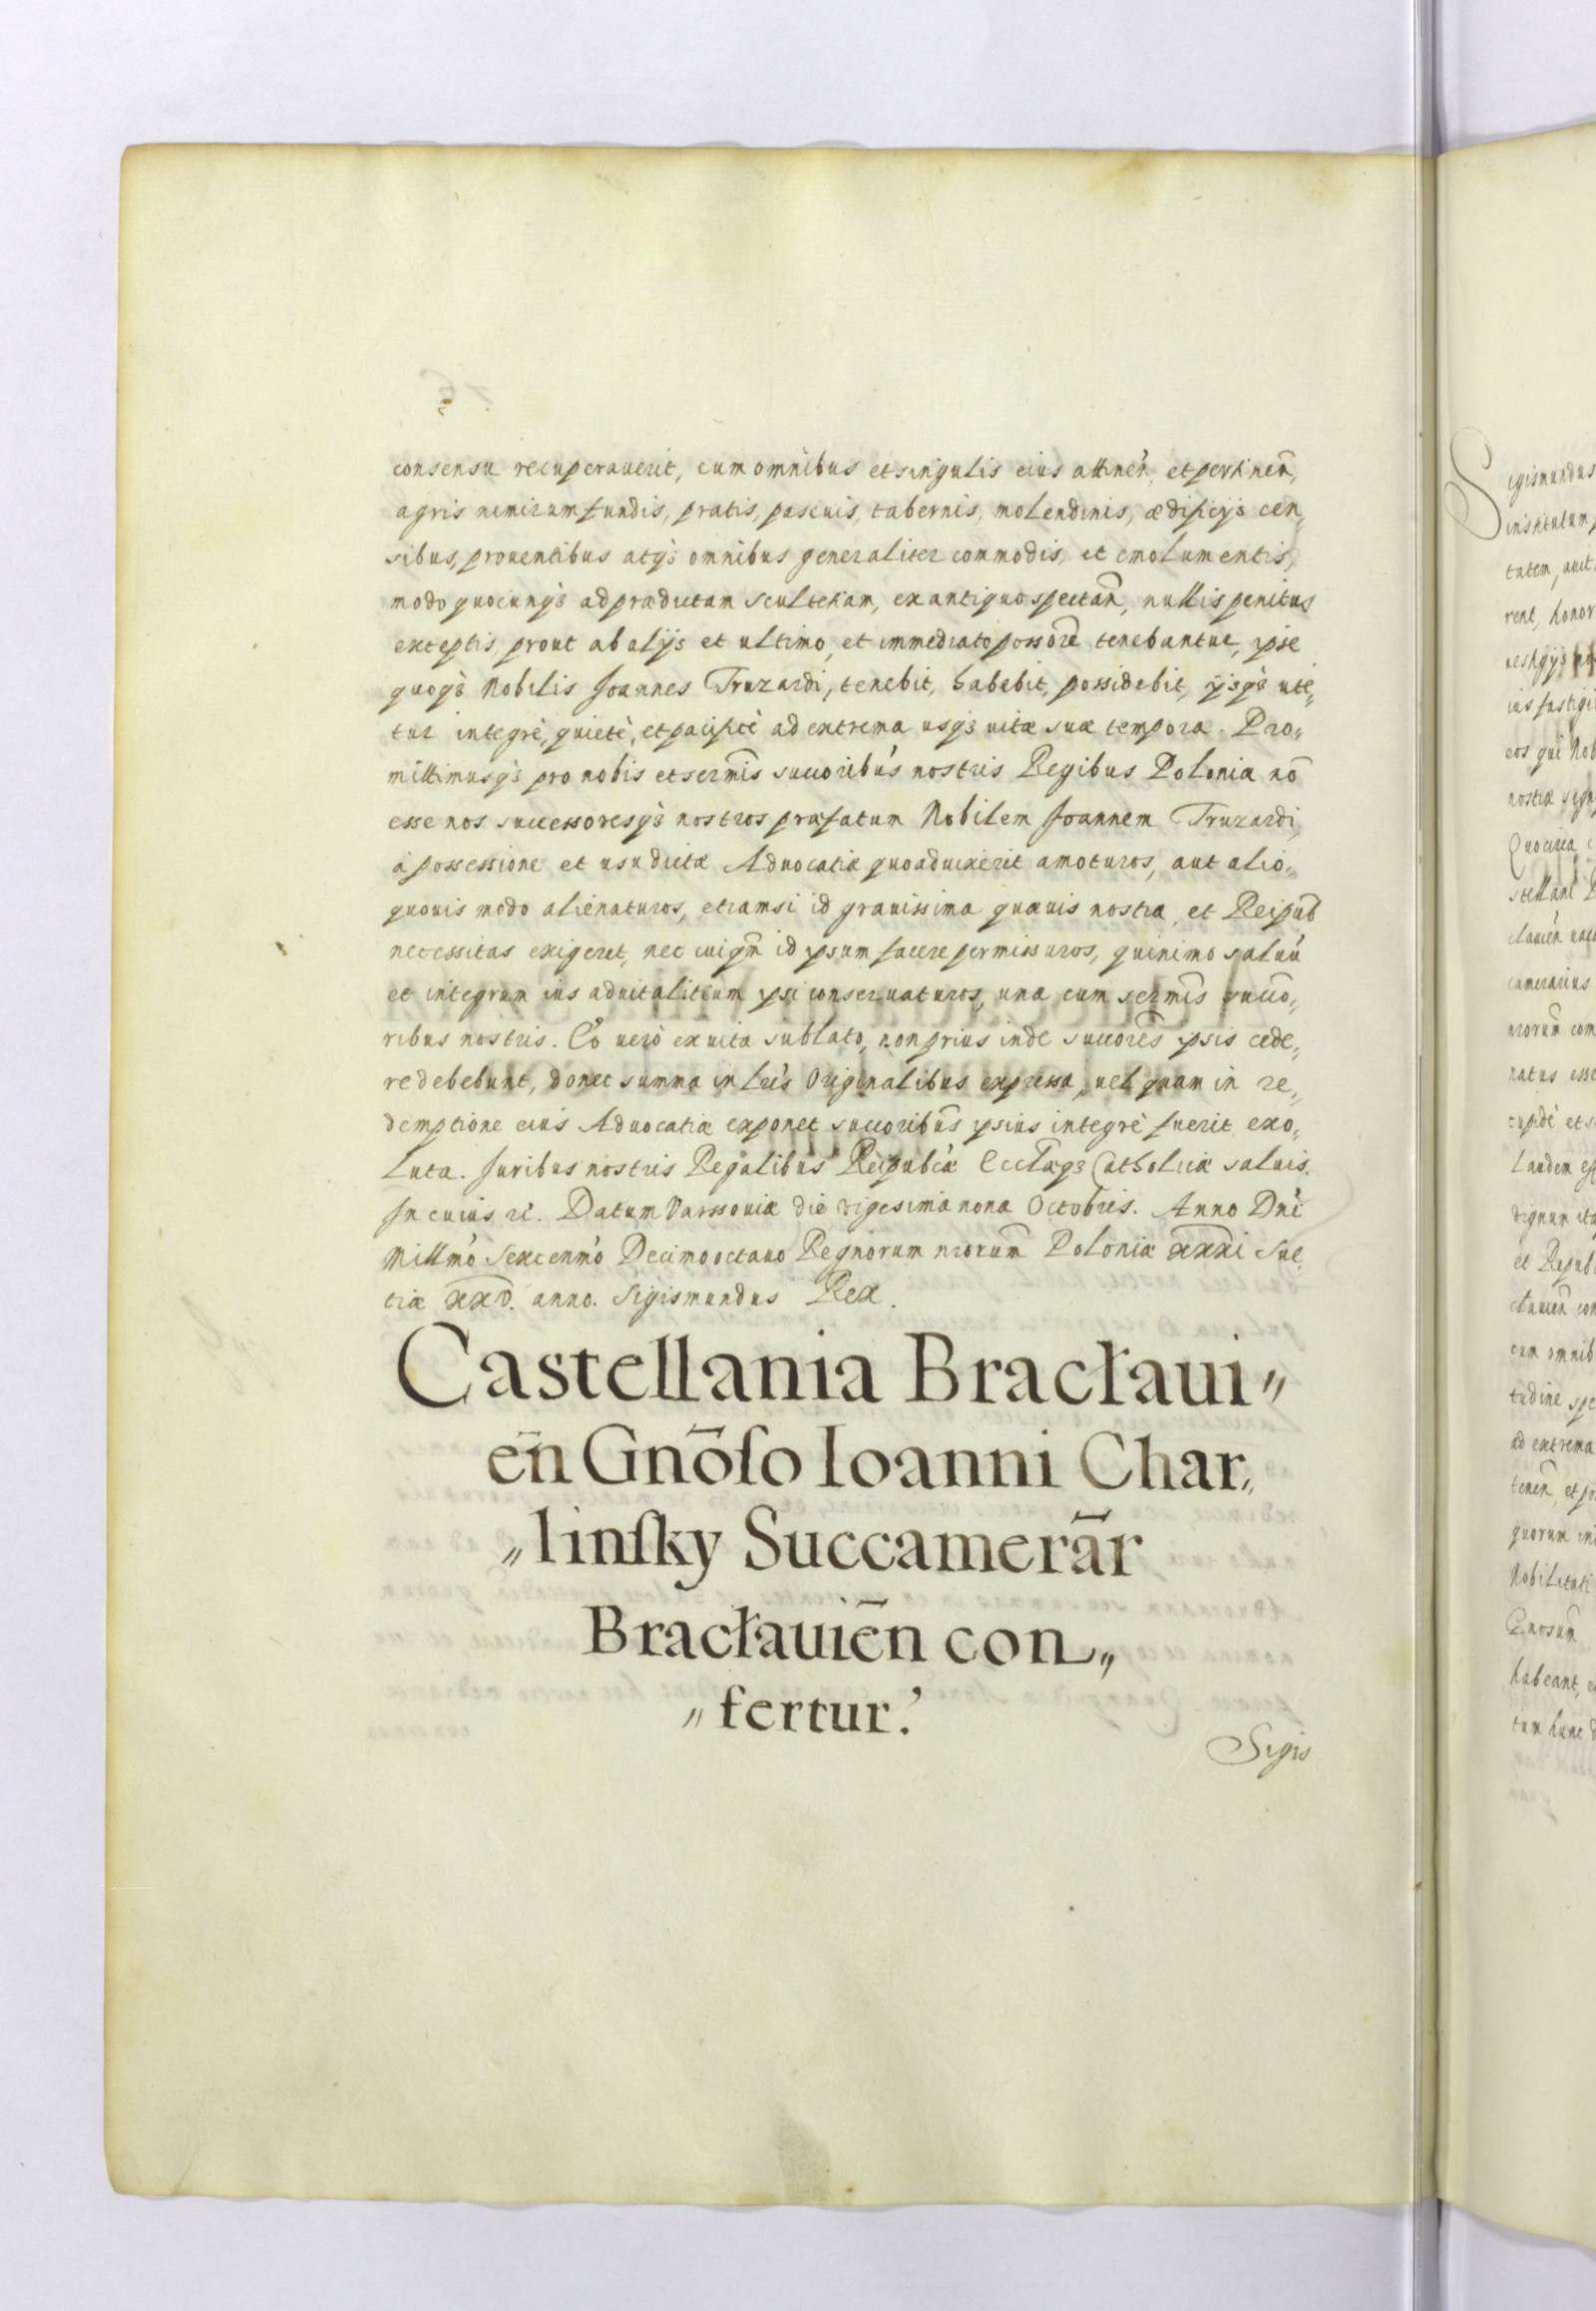 consensu recuperauerit, cum omnibus et singulis eius attineñ, et pertineñ,
agris nimirum fundis, pratis, pascuis, tabernis, molendinis, ædificijs cen„
sibus, prouentibus atq3 omnibus generaliter commodis, et emolumentis,
modo quocunq3 ad prædictam scultetiam, ex antiquo spectañ, nullis penitus
exceptis, prout ab alijs et ultimo, et immediato possorẽ tenebantur, ipse
quoq3 Nobilis Joannes Truzardi, tenebit, habebit, possidebit, ijsq3 ute„
tur integrè, quietè, et pacificè ad extrema usq3 uitæ suæ tempora. Pro„
mittimusq3 pro nobis et sermis succoribus nostris Regibus Poloniæ nõ
esse nos successoresq3 nostros præfatum Nobilem Joannem Truzardi,
à possessione et usu dictæ Aduocatiæ quoad uixerit amoturos, aut alio„
quouis modo alienaturos, etiamsi id grauissima quæuis nostra, et Reipub
necessitas exigeret, nec cuiqm̃ id ipsum facere permissuros, quinimo saluũ
et integrum ius aduitalitium ipsi conseruaturos, una cum sermis succo„
ribus nostris. Eo uerò ex uita sublato, non prius inde succorẽs ipsis cede„
re debebunt, donec summa in Lris Originalibus expressa, uel quam in re„
demptione eius Aduocatiæ exponet succoribus ipsius integrè fuerit exo„
luta. Juribus nostris Regalibus Reipubcæ Ecclæq3 Catholicæ saluis.
In cuius rei. Datum Varssouiæ die vigesima nona Octobris. Anno Dni
Millmo Sexcenmo Decimo octauo Regnorum nrorum Poloniæ xxxi Sue„
tiæ xxv. anno. Sigismundus Rex.
Castellania Bracłaui„
eñ Gnõſo Ioanni Char„
„linſky Succamerãr
Bracłauieñ con„
„fertur.
Sigis
S
igismundus
institutum
tatem, aut
rent, honor
ius fastigi
eos qui Nob
Quocirca
camerarius
natus esse
Laudem
dignum ita
et Repub
cum omnib
tudine spe
ad extrema
quorum in
Nobilitati
Gnosum
habeant, e
tum hunc